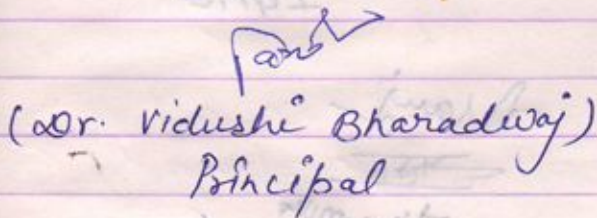 (Dr. Vidushi Bharadwaj)
Principal